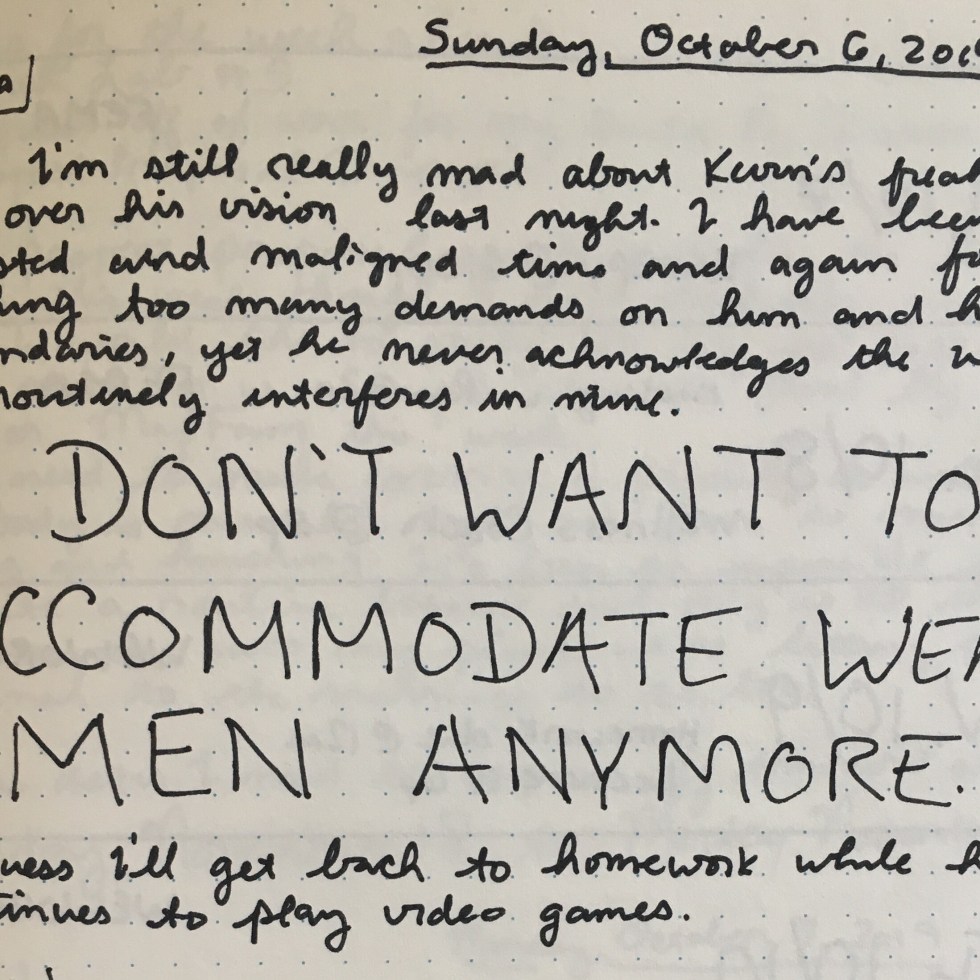 Sunday, October 6, 201
I'm still really mad about Kevin's freak
over his vision last night. I have bee
sted and maligned time and again fo
ing too many demands on him and h
ndaries, yet he never acknowledges the w
routinely interferes in mine.
DON'T WANT TO
CCOMMODATE WEA
MEN ANYMORE.
uess I'll get back to homework while h
tinues to play video games.